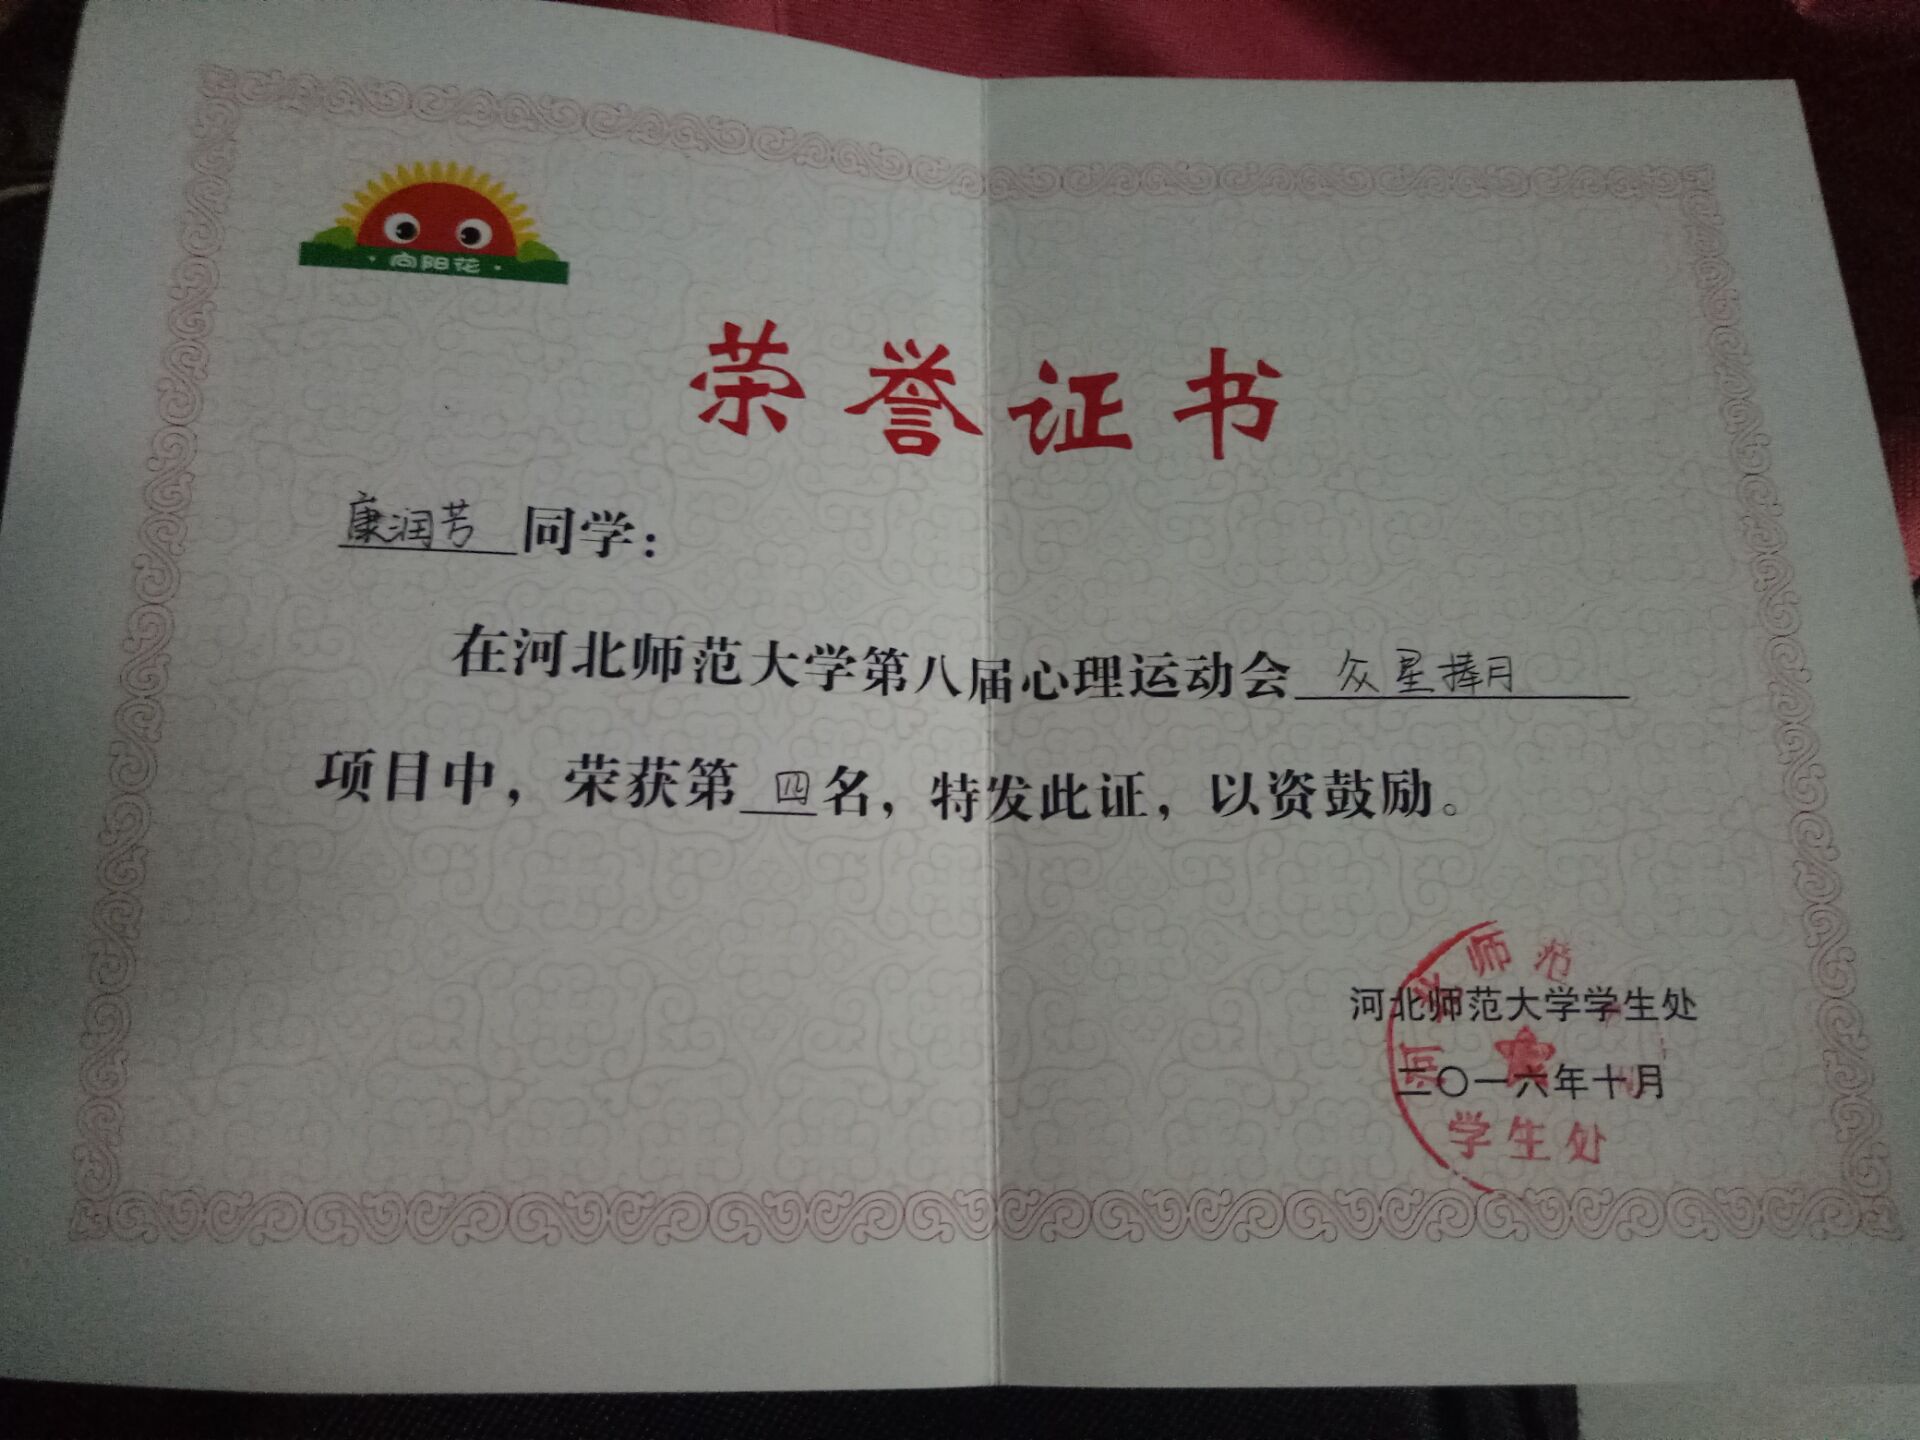 ·向阳花·
荣誉证书
康润芳 同学：
在河北师范大学第八届心理运动会 众星捧月
项目中，荣获第 四 名，特发此证，以资鼓励。
河北师范大学学生处
二〇一六年十月
河北师范
学生处